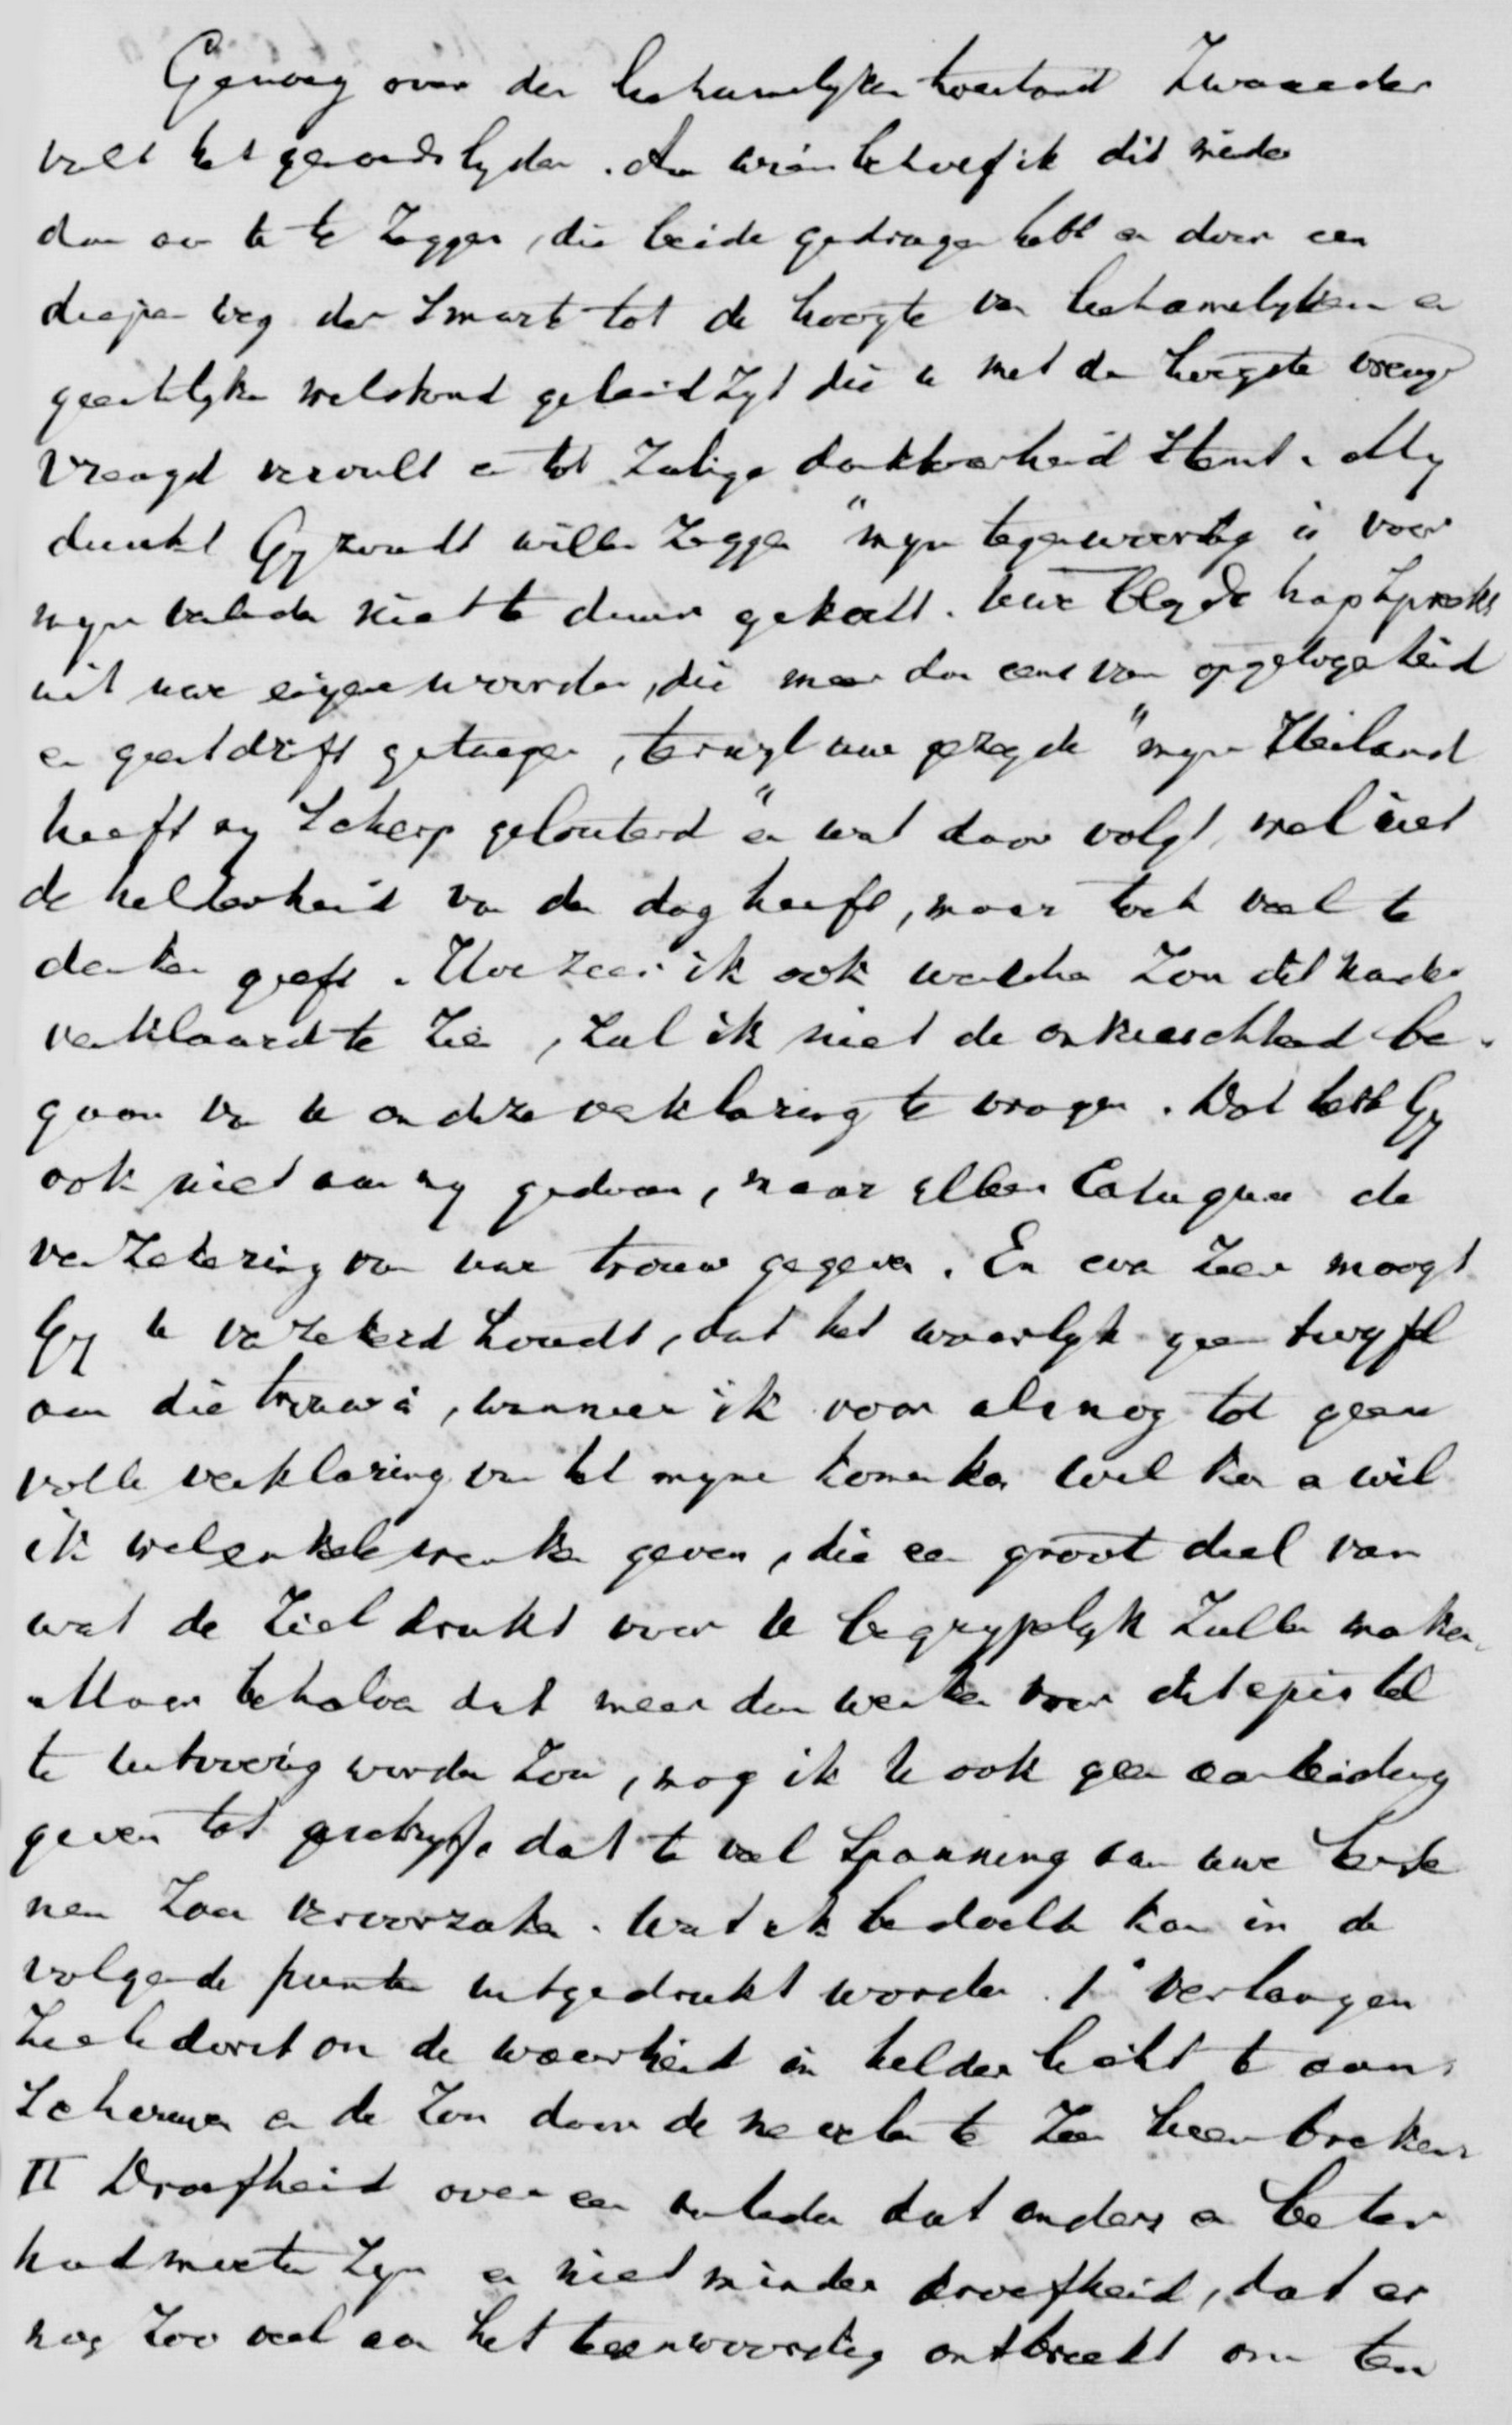 Genoeg over den lichamelyken toestand Zwaarder
valt het gemoedslyden. Aan wien behoef ik dit minder
dan aan U te zeggen, die beide gedragen hebt en door een
diepen weg der smart tot de hoogte van lichamelyken en
geestelyken welstand geleid zyt die U met de hoogste vreug
vreugd vervult en tot zalige dankbaarheid stemt. My
dunkt Gy zoudt willen zeggen "myn tegenwoordig is voor
myn verleden niet te duur gekocht. Uwe blyde hoop spreekt
uit uwe eigene woorden, die meer dan eens van opgetogenheid
en geestdrift getuigen, terwyl uw gezegde "myn Heiland
heeft my scherp gelouterd" en wat daar volgt, wel niet
de helderheid van den dag heeft, maar toch veel te
denken geeft. Hoezeer ik ook wenschen zou dit nader
verklaard te zien, zal ik niet de onkieschheid be-
gaan van U om deze verklaring te vragen. Dat hebt Gy
ook niet aan my gedaan, maar alleen de
verzekering van uwe trouw gegeven. En even zeer moogt
Gy U verzekerd houdt, dat het waarlyk geen twyfel
aan die trouw is, wanneer ik voor alsnog tot geene
volle verklaring van het myne komen kan Wel kan en wil
ik wel enkele wenken geven, die een groot deel van
wat de ziel drukt voor U begrypelyk zullen maken.
Maar behalve dat meer dan wenken voor dit epistel
te uitvoerig worden zou, mag ik U ook geen aanleiding
geven tot geschryf dat te veel spanning aan uwe herse
nen zou veroorzaken. Wat ik bedoelde kan in de
volgende punten uitgedrukt worden. 1° Verlangen
Zieledorst om de waarheid in helder licht te aan-
schouwen en de zon door de nevelen te zien heenbreken
II Droefheid over een verleden dat anders en beter
had moeten zyn en niet minder droefheid, dat er
nog zoo veel aan het teenwoordig ontbreekt om ten